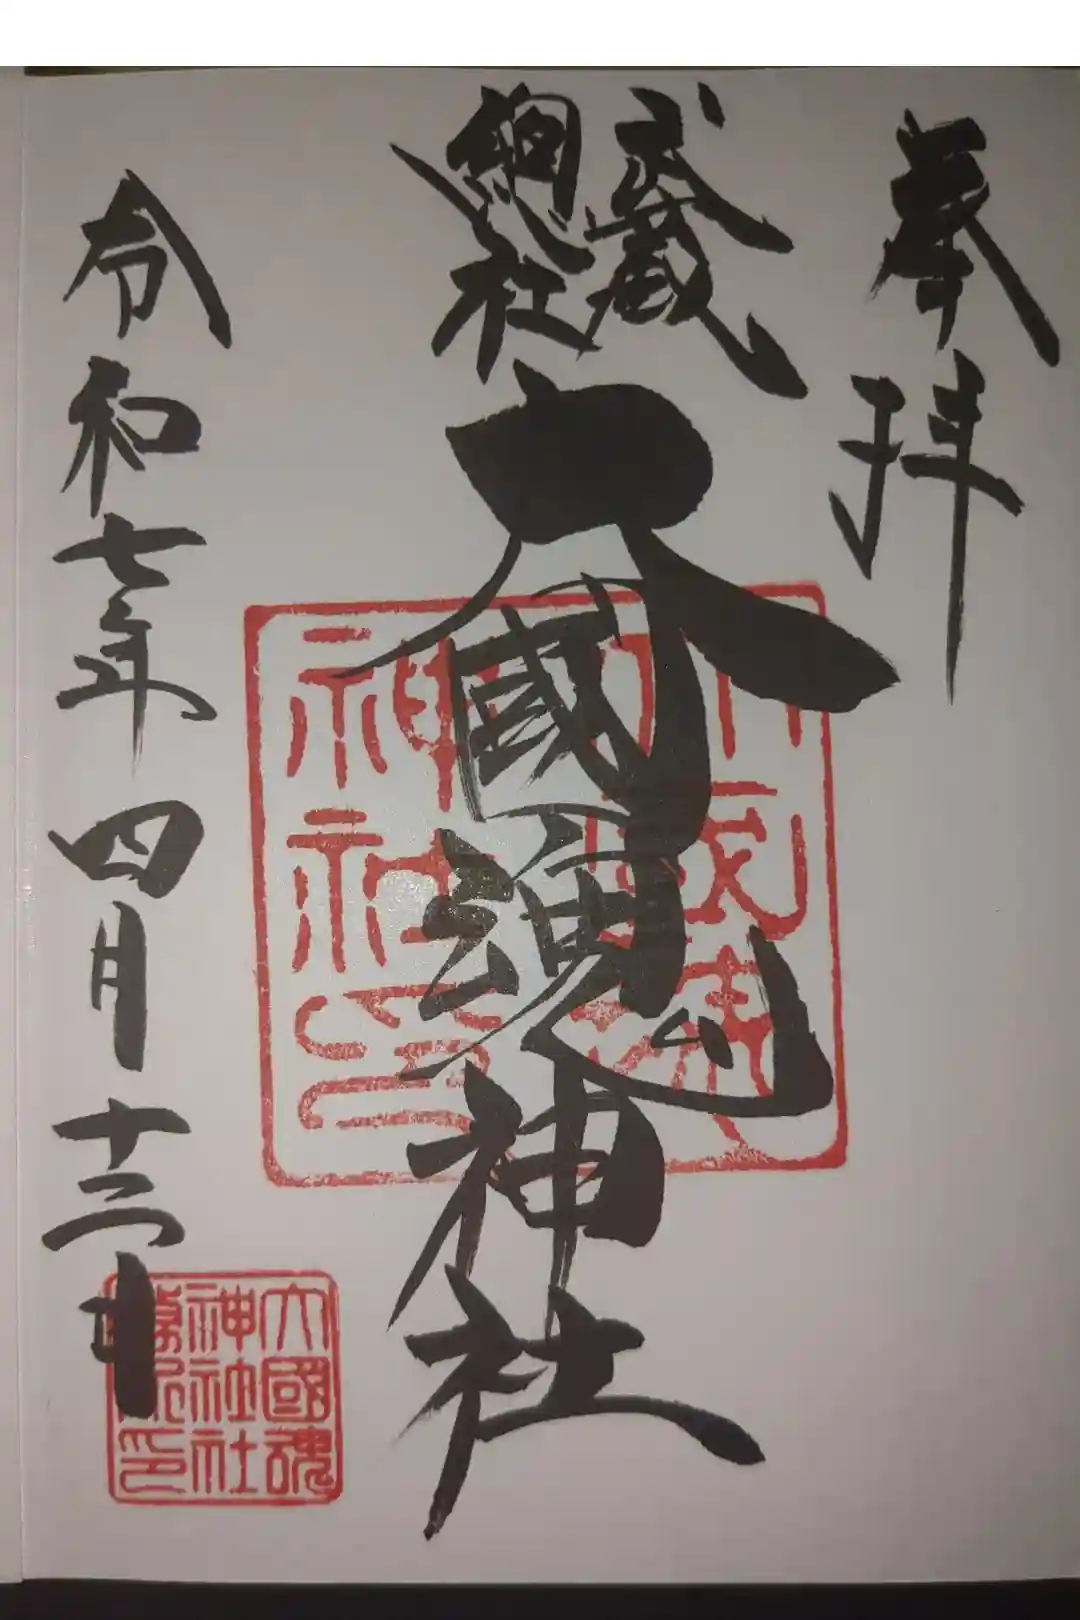 奉拝
武蔵
總社
大國魂神社
令和七年四月十二日
大國魂
神社
神社印
大國魂
神社